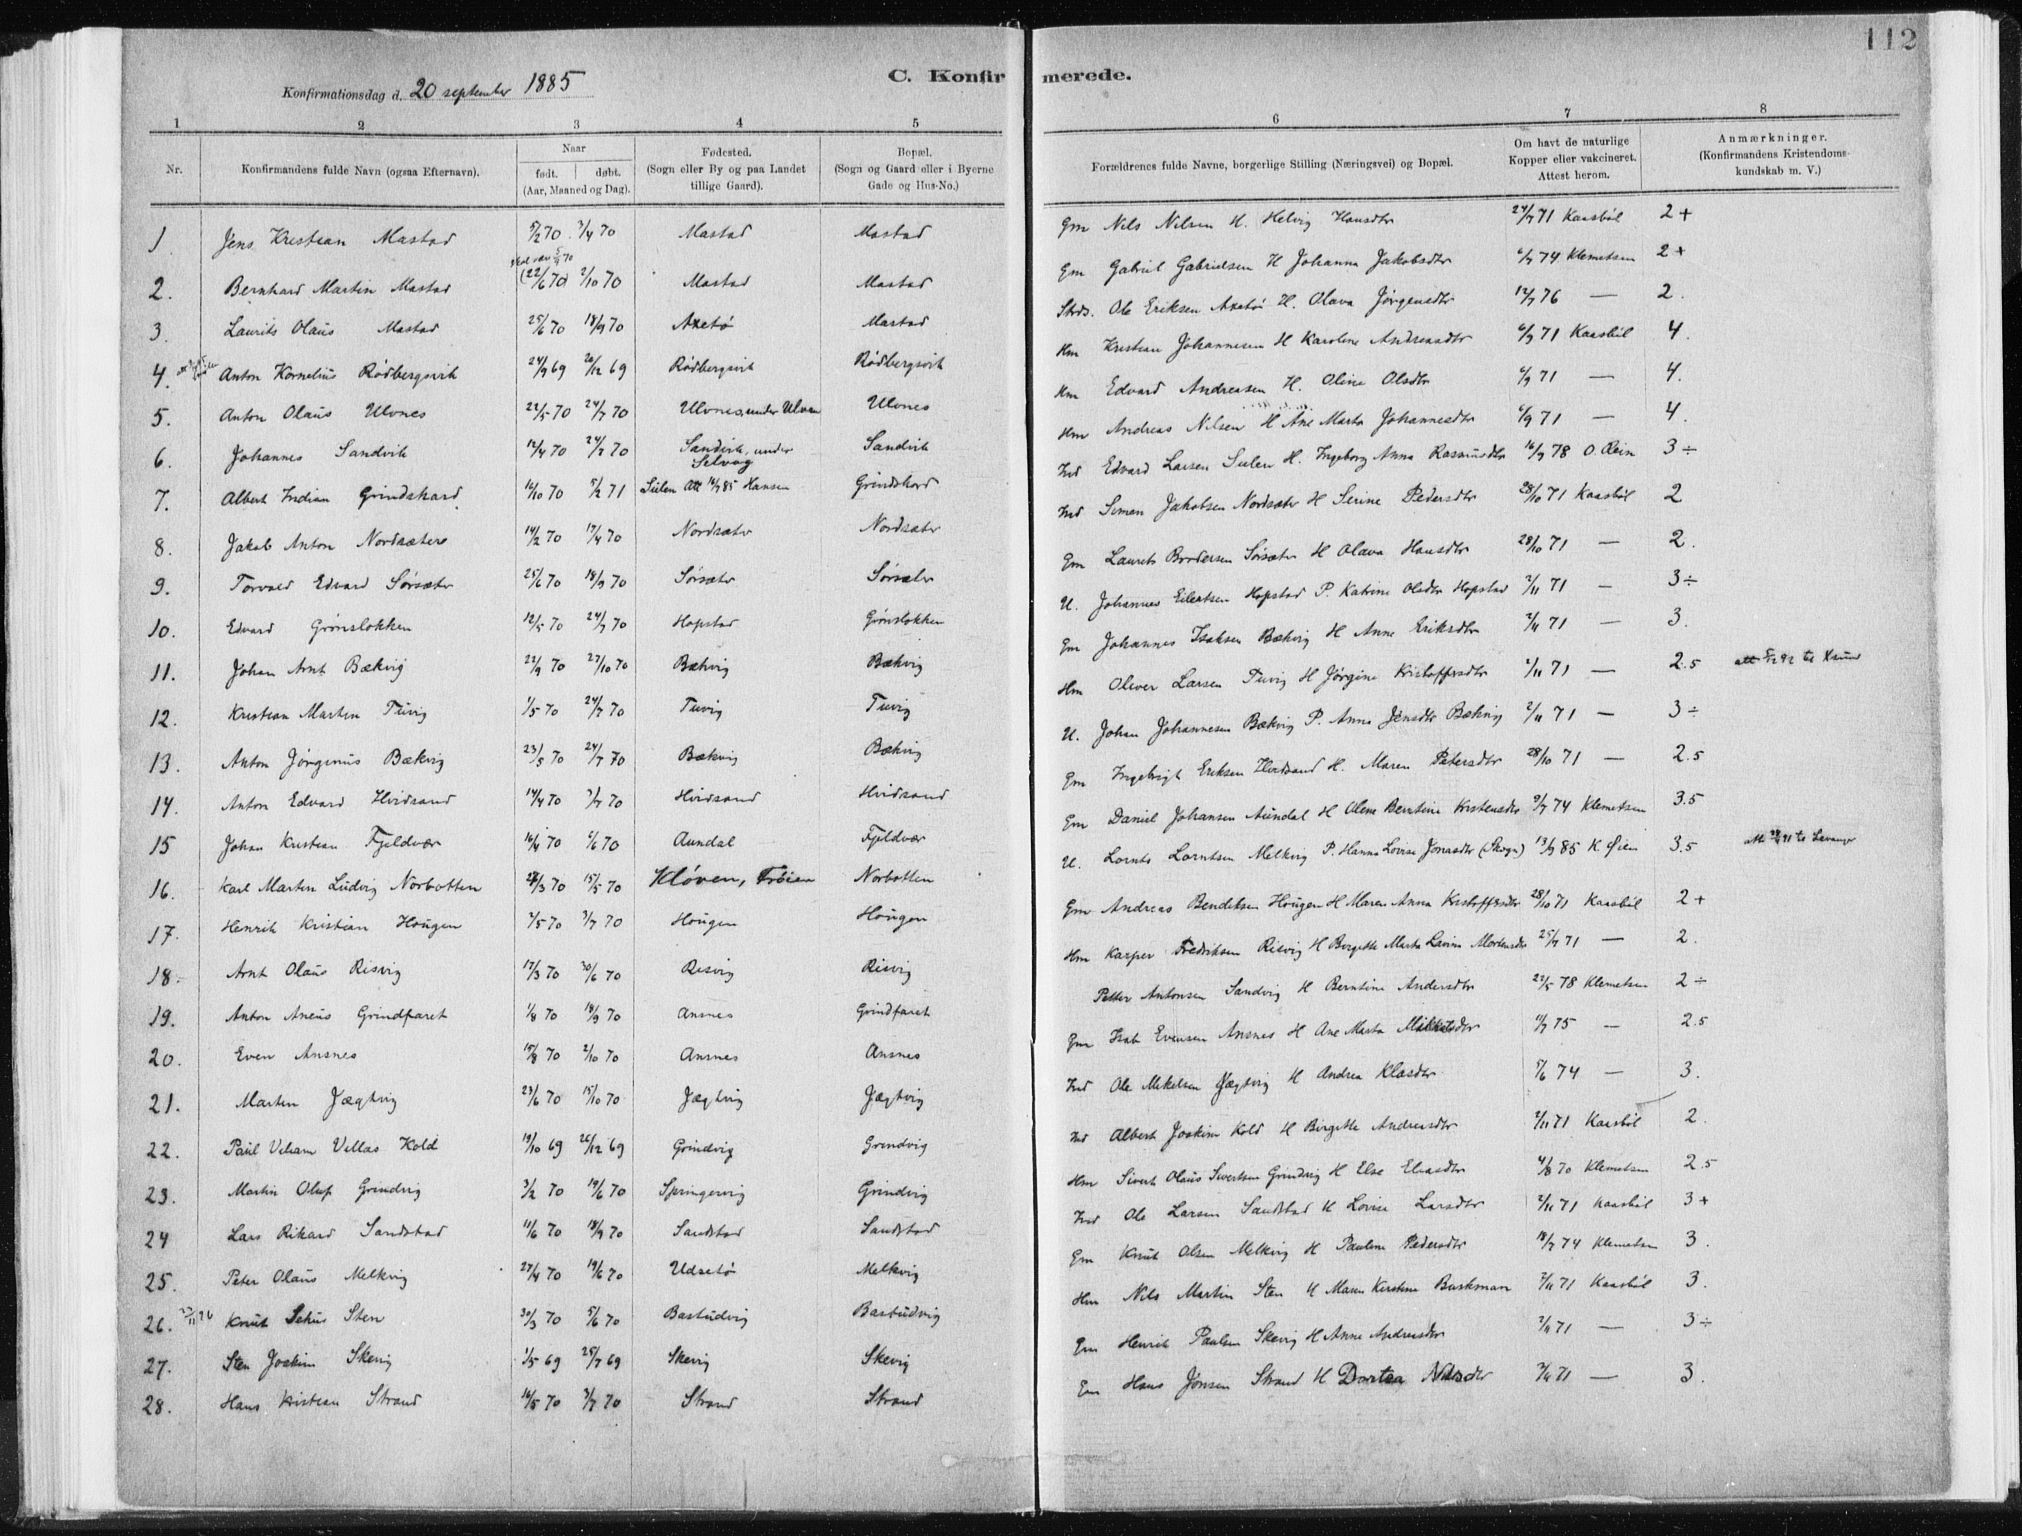 112
C. Konfirmerede.
Konfirmationsdag d. 20 september 1885
1 2 3 4 5 6 7 8
Nr. Konfirmandens fulde Navn (ogsaa Efternavn). Naar født. døbt. (Aar, Maaned og Dag). Fødested. (Sogn eller By og paa Landet tillige Gaard). Bopæl. (Sogn og Gaard eller i Byerne Gade og Hus-No.) Forældrenes fulde Navne, borgerlige Stilling (Næringsvei) og Bopæl. Om havt de naturlige Kopper eller vakcineret. Attest herom. Anmærkninger. (Konfirmandens Kristendomskundskab m. V.)
1. Jens Kristian Mastad 5/2 70 3/4 70 Mastad Mastad Gm Nils Nilsen H. Helvig Hansdtr 24/7 71 Kaasbøl 2+
2. Bernhard Martin Mastad (22/6 70) 2/10 70 Mastad Mastad Gm Gabriel Gabrielsen H Johanna Jakobsdtr 6/7 74 Klemetsen 2+
3. Laurits Olaus Mastad 25/6 70 18/9 70 Axetø Mastad Ole Eriksen Axetø H. Olava Jørgensdtr 12/7 76 — 2.
4. Anton Kornelius Rødbergsvik 24/9 69 26/12 69 Rødbergsvik Rødbergsvik Hm Kristian Johannesen H Karoline Andreasdtr 6/9 71 Kaasbøl 4.
5. Anton Olaus Ulvnes 22/5 70 24/7 70 Ulvnes, under Ulvan Ulvnes Hm Edvard Andreasen H. Oline Olsdtr 6/9 71 — 4.
6. Johannes Sandvik 12/4 70 24/7 70 Sandvik, under Selvag Sandvik Hm Andreas Nilsen H Ane Marta Johannesdtr 6/9 71 — 4.
7. Albert Indian Grindskard 16/10 70 5/2 71 Sulen Att 14/7 85 Hansen Grindskard Ind Edvard Larsen Sulen H. Ingeborg Anna Rasmusdtr 16/9 78 O. Rein 3÷
8. Jakob Anton Nordsætere 14/2 70 17/4 70 Nordsætr Nordsætr Ind Simon Jakobsen Nordsæter H Serine Pedersdtr 28/10 71 Kaasbøl 2
9. Torvald Edvard Sørsæter 25/6 70 18/9 70 Sørsæter Sørsæter Gm Laurits Brodersen Sørsæter H Olava Hansdtr 28/10 71 — 2.
10. Edvard Grønslokken 12/5 70 24/7 70 Hopstad Grønslokken U. Johannes Eilertsen Hopstad P. Katrine Olsdtr Hopstad 2/11 71 — 3÷
11. Johan Arnt Bækvig 22/9 70 27/10 70 Bækvig Bækvig Gm Johannes Isaksen Bækvig H Anne Eriksdtr 2/11 71 — 3.
12. Kristian Martin Tuvig 1/5 70 24/7 70 Tuvig Tuvig Hm Oliver Larsen Tuvig H Jørgine Kristoffersdtr 2/11 71 — 2.5
13. Anton Jørginus Bækvig 23/5 70 24/7 70 Bækvig Bækvig U. Johan Johannesen Bækvig P. Anna Jensdtr Bækvig 2/11 71 — 3÷
14. Anton Edvard Hvidsand 14/4 70 3/7 70 Hvidsand Hvidsand Gm Ingebrigt Eriksen Hvidsand H. Maren Petersdtr 28/10 71 — 2.5
15 Johan Kristian Fjeldvær 16/4 70 6/6 70 Aundal Fjeldvær Gm Daniel Johansen Aundal H Olene Berntine Kristensdtr 9/7 74 Klemetsen 3.5
16. Karl Martin Ludvig Norbotten 28/3 70 15/5 70 Kløven, Frøien Norbotten U. Lornts Lorntsen Melkvig P. Hanna Lovise Jonasdtr (Skogn) 13/9 85 K Øien 3.5 att 91 til Levanger
17. Henrik Kristian Hougen 2/5 70 3/7 70 Hougen Hougen Gm Andreas Bendiksen Hougen H Maren Anna Kristoffersdtr 28/10 71 Kaasbøl 2+
18. Arnt Olaus Risvig 17/3 70 30/6 70 Risvig Risvig Hm Kasper Fredriksen Risvig H Birgitte Marta Lavina Mortensdtr 25/7 71 — 2.
19. Anton Aneus Grindfaret 1/8 70 18/9 70 Ansnes Grindfaret Petter Antonsen Sandvig H Berntine Andersdtr 22/5 78 Klemetsen 2÷
20. Even Ansnes 15/8 70 2/10 70 Ansnes Ansnes Gm Isak Evensen Ansnes H Ane Marta Mikkelsdtr 11/7 75 — 2.5
21. Martin Jægtvig 23/6 70 15/10 70 Jægtvig Jægtvig Ind Ole Mikelsen Jægtvig H Andrea Klasdtr 5/6 74 — 3.
22. Paul Viliam Villas Kold 19/10 69 26/12 69 Grindvig Grindvig Ind Albert Joakim Kold H Birgitte Andreasdtr 2/11 71 Kaasbøl 2.
23. Martin Oluf Grindvig 3/2 70 19/6 70 Springervig Grindvig Hm Sivert Olaus Sivertsen Grindvig H Else Eliasdtr 4/8 70 Klemetsen 2.5
24 Lars Rikard Sandstad 11/6 70 18/9 70 Sandstad Sandstad Ind Ole Larsen Sandstad H Lovise Larsdtr 2/11 71 Kaasbøl 3+
25. Peter Olaus Melkvig 27/4 70 19/6 70 Udsetø Melkvig Gm Knut Olsen Melkvig H Pauline Pedersdtr 18/7 74 Klemetsen 3.
26. Knut Sten 30/3 70 5/6 70 Bastudvig Bastudvig Hm Nils Martin Sten H Maren Kirstine Buskman 2/11 71 Kaasbøl 3.
27. Sten Joakim Skevig 1/5 69 25/7 69 Skevig Skevig Gm Henrik Paulsen Skevig H Anne Andreasdtr 2/11 71 — 3÷
28. Hans Kristian Strand 16/5 70 3/7 70 Strand Strand Em Hans Jonsen Strand H Dortea Nilsdtr 2/11 71 — 3.